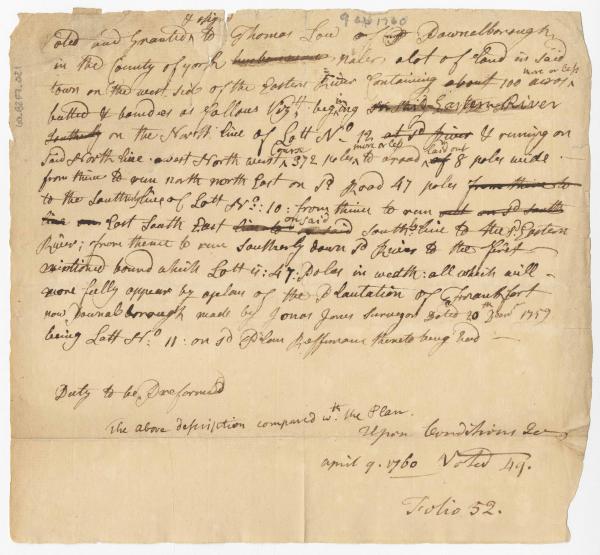 9 ap 1760
& assign
Voted and Granted to Thomas Low of Pownalborough
in the County of york husbandman a lot of Land in said
town on the west side of the Eastern River Containing about 100 acres more or less
butted & bounded as follows Viz: begining on the Eastern River
Southerly on the North line of Lott No. 12 at sd River & runing on
Said North line west North west Course 372 poles more or less to a road laid out of 8 poles wide
from thence to run north north East on sd Road 47 poles from thence to
to the Southerly line of Lott No: 10: from thence to run out on sd south
line on East South East on said South line to the sd Eastern
River; from thence to run Southerly down sd River to the first
mentioned bound which Lott is: 47: Poles in wedth: all which will
more fully appear by a plan of the Plantation of Frankfort
now Pownalborough made by Jonas Jones Surveyor Dated 20th 1759
being Lott No 11: on sd Plan Refferance thereto being had
Duty to be Preformed
The above description compared wth the Plan.
Upon Conditions &c
april 9. 1760 Voted 49.
Folio 52.